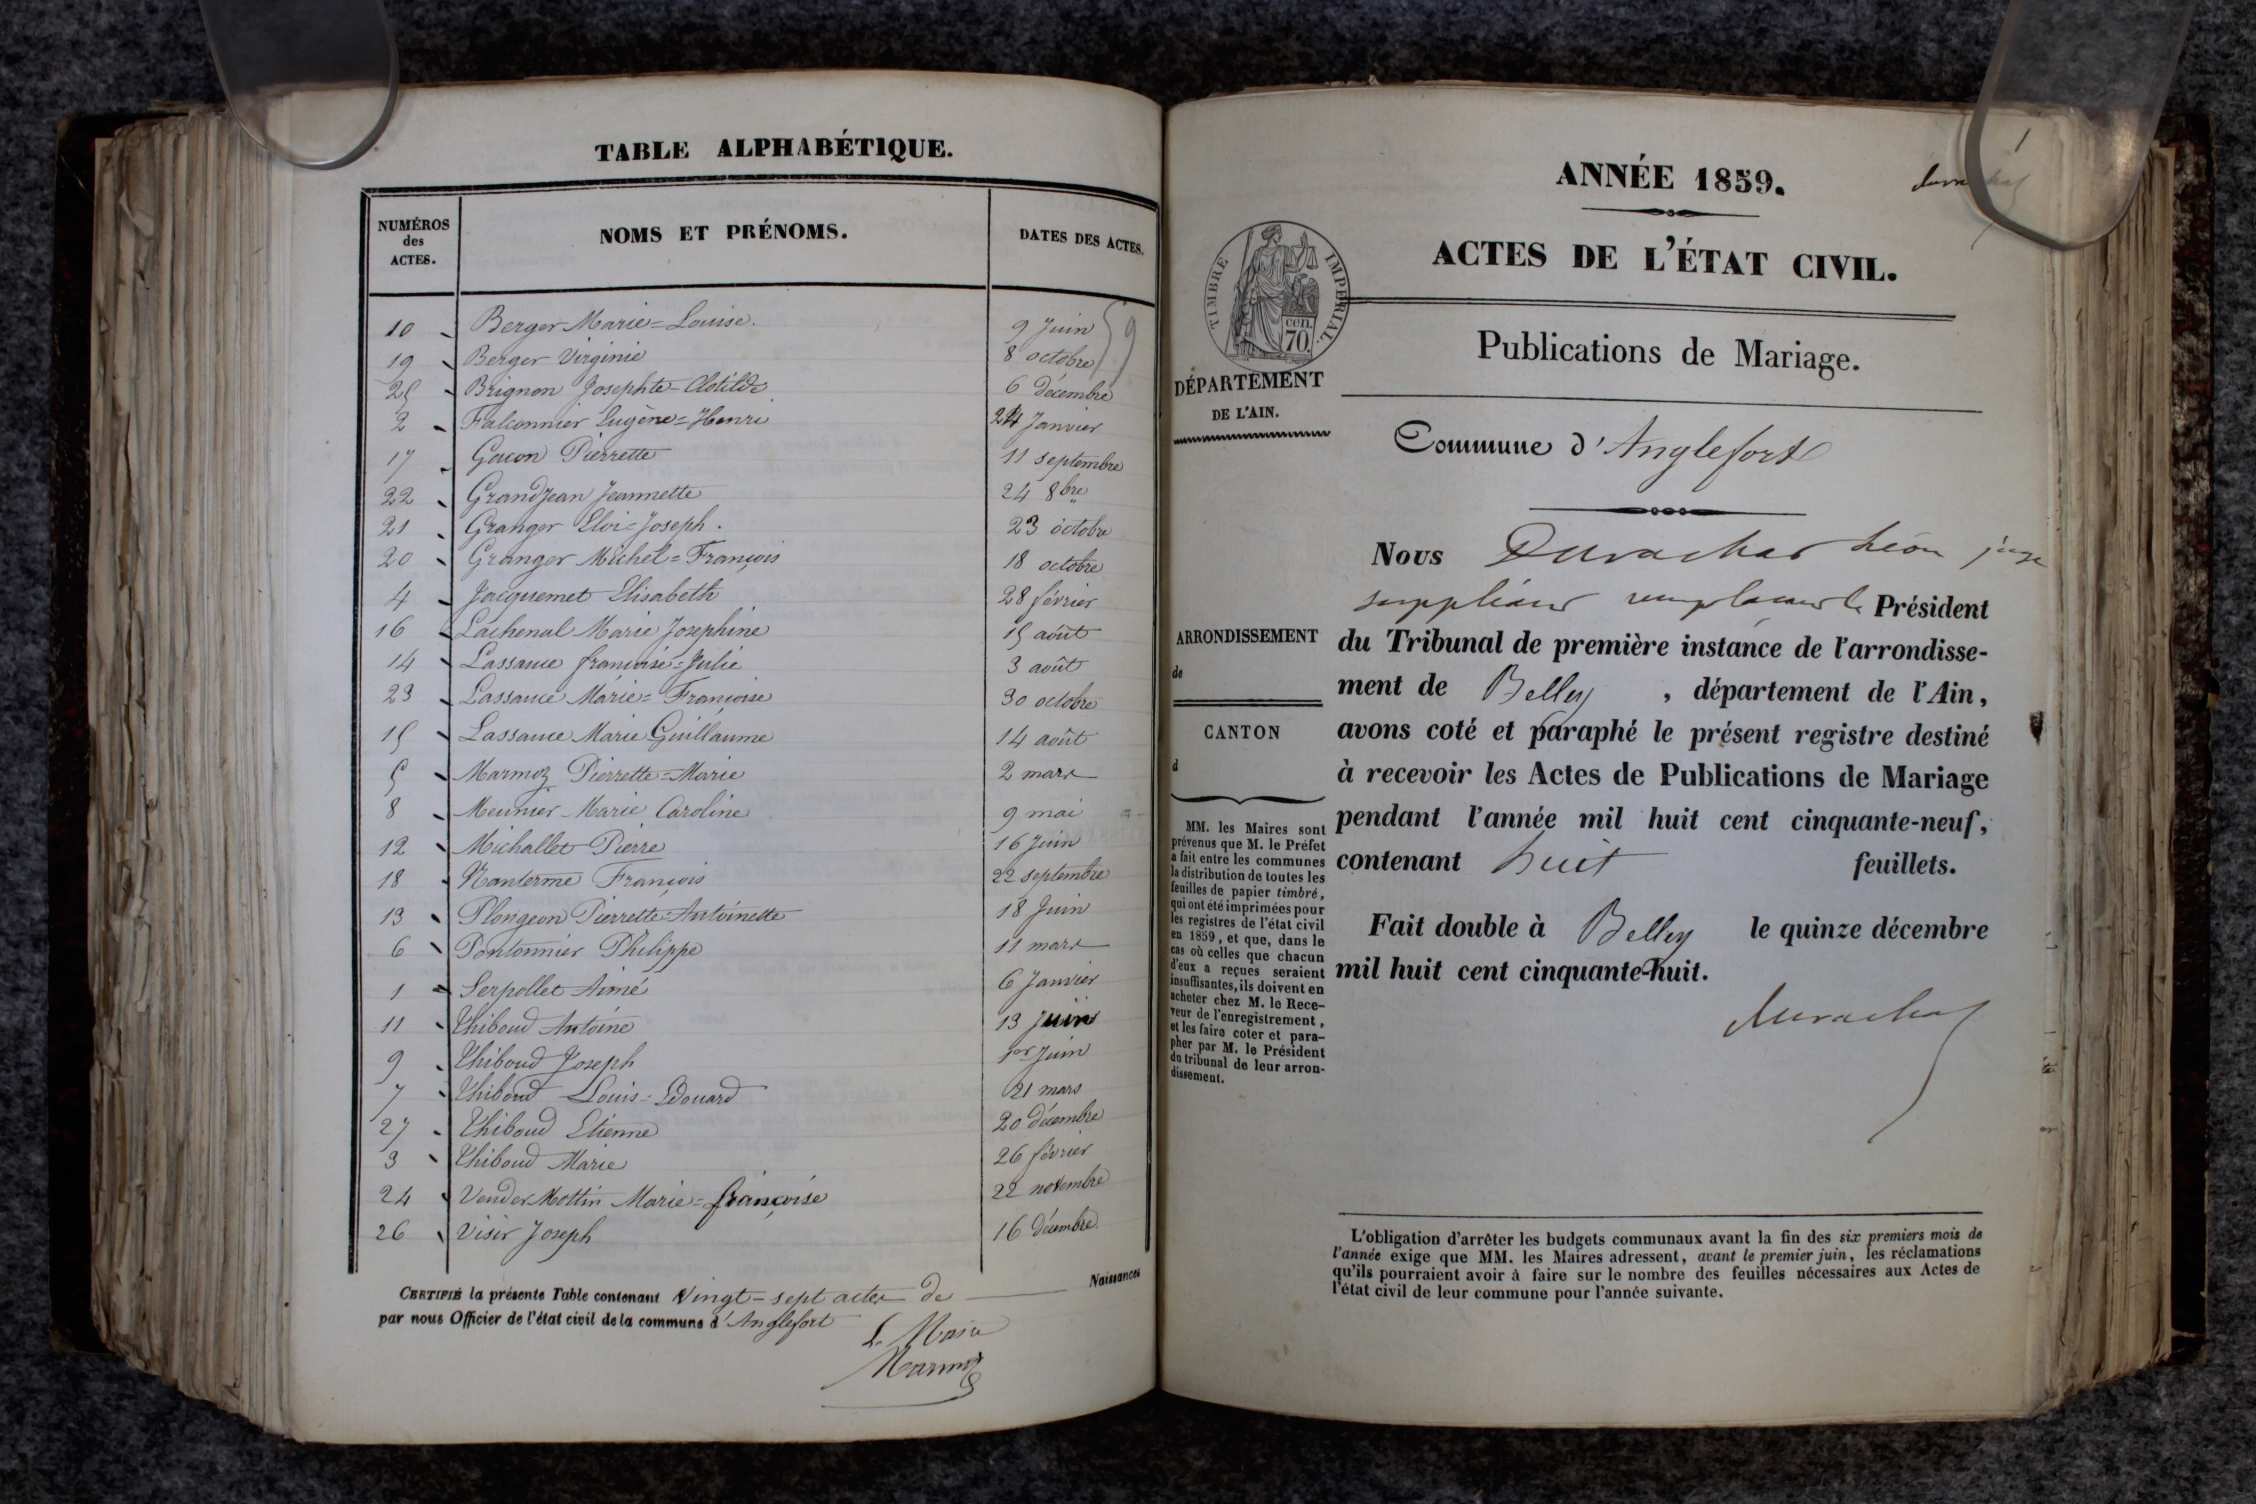 TABLE ALPHABÉTIQUE.
NUMÉROS
des
ACTES.
NOMS ET PRÉNOMS.
DATES DES ACTES.
10 Berger Marie=Louise. 9 Juin
19 Berger Virginie 8 octobre
9
25 Brignon Josephte-Clotilde 6 décembre
2 Falconnier Eugène=Henri 24 Janvier
17 Gacon Pierrette 11 septembre
22 Grandjean Jeannette 24 8bre
21 Granger Eloi=Joseph. 23 octobre
20 Granger Michel=François 18 octobre
4 Jacquemet Elisabeth 28 février
16 Lachenal Marie Josephine 15 août
14 Lassauce françoise=Julie 3 août
23 Lassauce Marie=Françoise 30 octobre
15 Lassauce Marie Guillaume 14 août
5 Marmoz Pierrette=Marie 2 mars
8 Meunier Marie Caroline 9 mai
12 Michallet Pierre 16 Juin
18 Nanterme François 22 septembre
13 Plongeon Pierrette-Antoinette 18 Juin
6 Pontonnier Philippe 11 mars
1 Serpollet Aimé 6 Janvier
11 Thiboud Antoine 13 Juin
9 Thiboud Joseph 1er Juin
7 Thiboud Louis=Edouard 21 mars
27 Thiboud Etienne 20 décembre
3 Thiboud Marie 26 février
24 Vender Mottin Marie=françoise 22 novembre
26 Visir Joseph 16 décembre
CERTIFIÉ la présente Table contenant Vingt=sept actes de Naissances
par nous Officier de l'état civil de la commune d'Anglefort
Le Maire
Marmoz
1
ANNÉE 1859.
ACTES DE L'ÉTAT CIVIL.
TIMBRE IMPÉRIAL.
cen.
70.
Publications de Mariage.
DÉPARTEMENT
DE L'AIN.
Commune d'Anglefort
ARRONDISSEMENT
de
CANTON
d
MM. les Maires sont
prévenus que M. le Préfet
a fait entre les communes
la distribution de toutes les
feuilles de papier timbré,
qui ont été imprimées pour
les registres de l'état civil
en 1859, et que, dans le
cas où celles que chacun
d'eux a reçues seraient
insuffisantes, ils doivent en
acheter chez M. le Rece-
veur de l'enregistrement,
et les faire coter et para-
pher par M. le Président
du tribunal de leur arron-
dissement.
Nous Durachat Léon juge
suppléant remplaçant le Président
du Tribunal de première instance de l'arrondisse-
ment de Belley, département de l'Ain,
avons coté et paraphé le présent registre destiné
à recevoir les Actes de Publications de Mariage
pendant l'année mil huit cent cinquante-neuf,
contenant huit feuillets.
Fait double à Belley le quinze décembre
mil huit cent cinquante-huit.
Durachat
L'obligation d'arrêter les budgets communaux avant la fin des six premiers mois de
l'année exige que MM. les Maires adressent, avant le premier juin, les réclamations
qu'ils pourraient avoir à faire sur le nombre des feuilles nécessaires aux Actes de
l'état civil de leur commune pour l'année suivante.